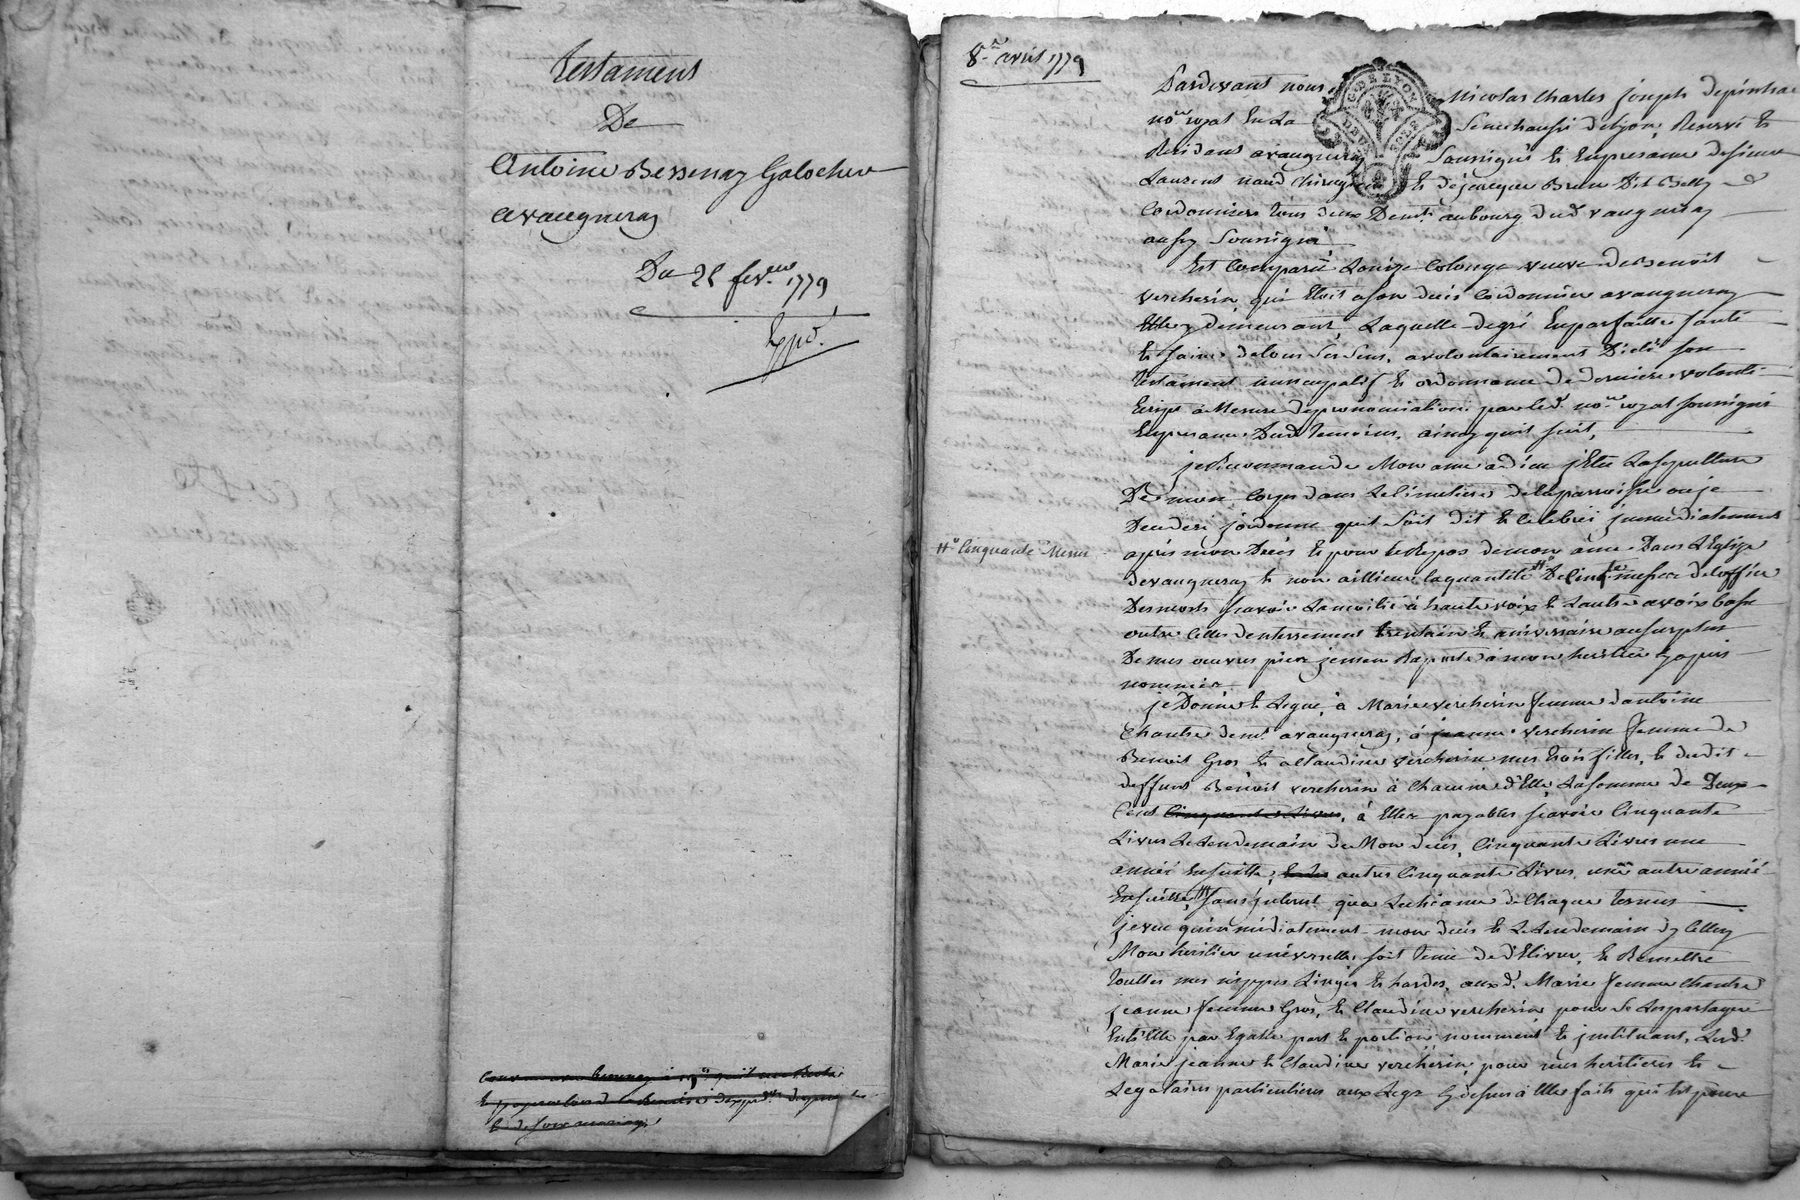 testament
De
Antoine Bessenay Galocher
avaugneray
Du 28 fevrier 1779
Exped.
8e avril 1779
Pardevant nous Nicolas Charles joseph depinhac
nore royal En La Senechaussé delyon, Reservé Et
Residant avaugneray Soussigné Et En presance desieur
Laurent naud Chirurgien Et dejacque Brun Dit Belly
Cordonniers tous deux Demt. aubourg dud. vaugneray
aussy Soussignés,
Est Comparüe Loüize Colonge veuve de Benoit
vercherin qui Etoit a son deces Cordonnier avaugneray
Elle y demeurant, Laquelle degré En parfaitte santé
Et saine de tous ses sens, a volontairement Dicté son
testament nuncupatif Et ordonnance De derniere volonté
Ecript a Mesure de prononciation par led. nore. royal soussigné
En presance Desd. temoins, ainsy quil suit,
je Recommande Mon ame a dieu j'Elis La sepulture
De mon Corps dans Le Cimetiere delaparroisse ou je
Decederé jordonne quil soit dit Et Celebré jmmediatement
# Cinquante Messes
apres mon Deces Et pour Le Repos de mon ame Dans L'Eglize
devaugneray Et non aillieur laquantité # De messes deloffice
Des morts scavoir La moitié a haute voix Et Lautre a voix basse
outre Celles d'enterrement trentain Et aniversaire au surplus
De mes oeuvres pies jemen Raporte a mon heritier Cy apres
nommée
je Donne Et Legue, a Marie vercherin femme d'antoine
Chautre demt. avaugneray, à jeanne vercherin femme de
Benoit Gros Et a Claudine vercherin mes trois filles, Et dudit
deffunt Benoit vercherin à Chacune d'Elle La somme de Deux
Cent Cinquante Livres, à Elles payables scavoir Cinquante
Livres Le Lendemain de Mon deces, Cinquante Livres une
année Ensuitte, Et Les autres Cinquante Livres une autre année
Ensuitte, # sans jnterest que Lecheance de Chaque termes
je veu qu'immediatement mon deces Et Le Lendemain dy Celluy
Mon heritier universelle soit tenu de deLivrer, Et Remettre
touttes mes nippes Linges Et hardes, auxd. Marie femme Chautre
jeanne femme Gros, Et Claudine vercherin pour se Les partager
Entr'Elle par Egalle part Et portion nommant Et jnstituant, Lesd.
Marie jeanne Et Claudine vercherin pour mes heritieres Et
Legataires particulieres aux Legs Cy dessus à Elles faits qui Est pour